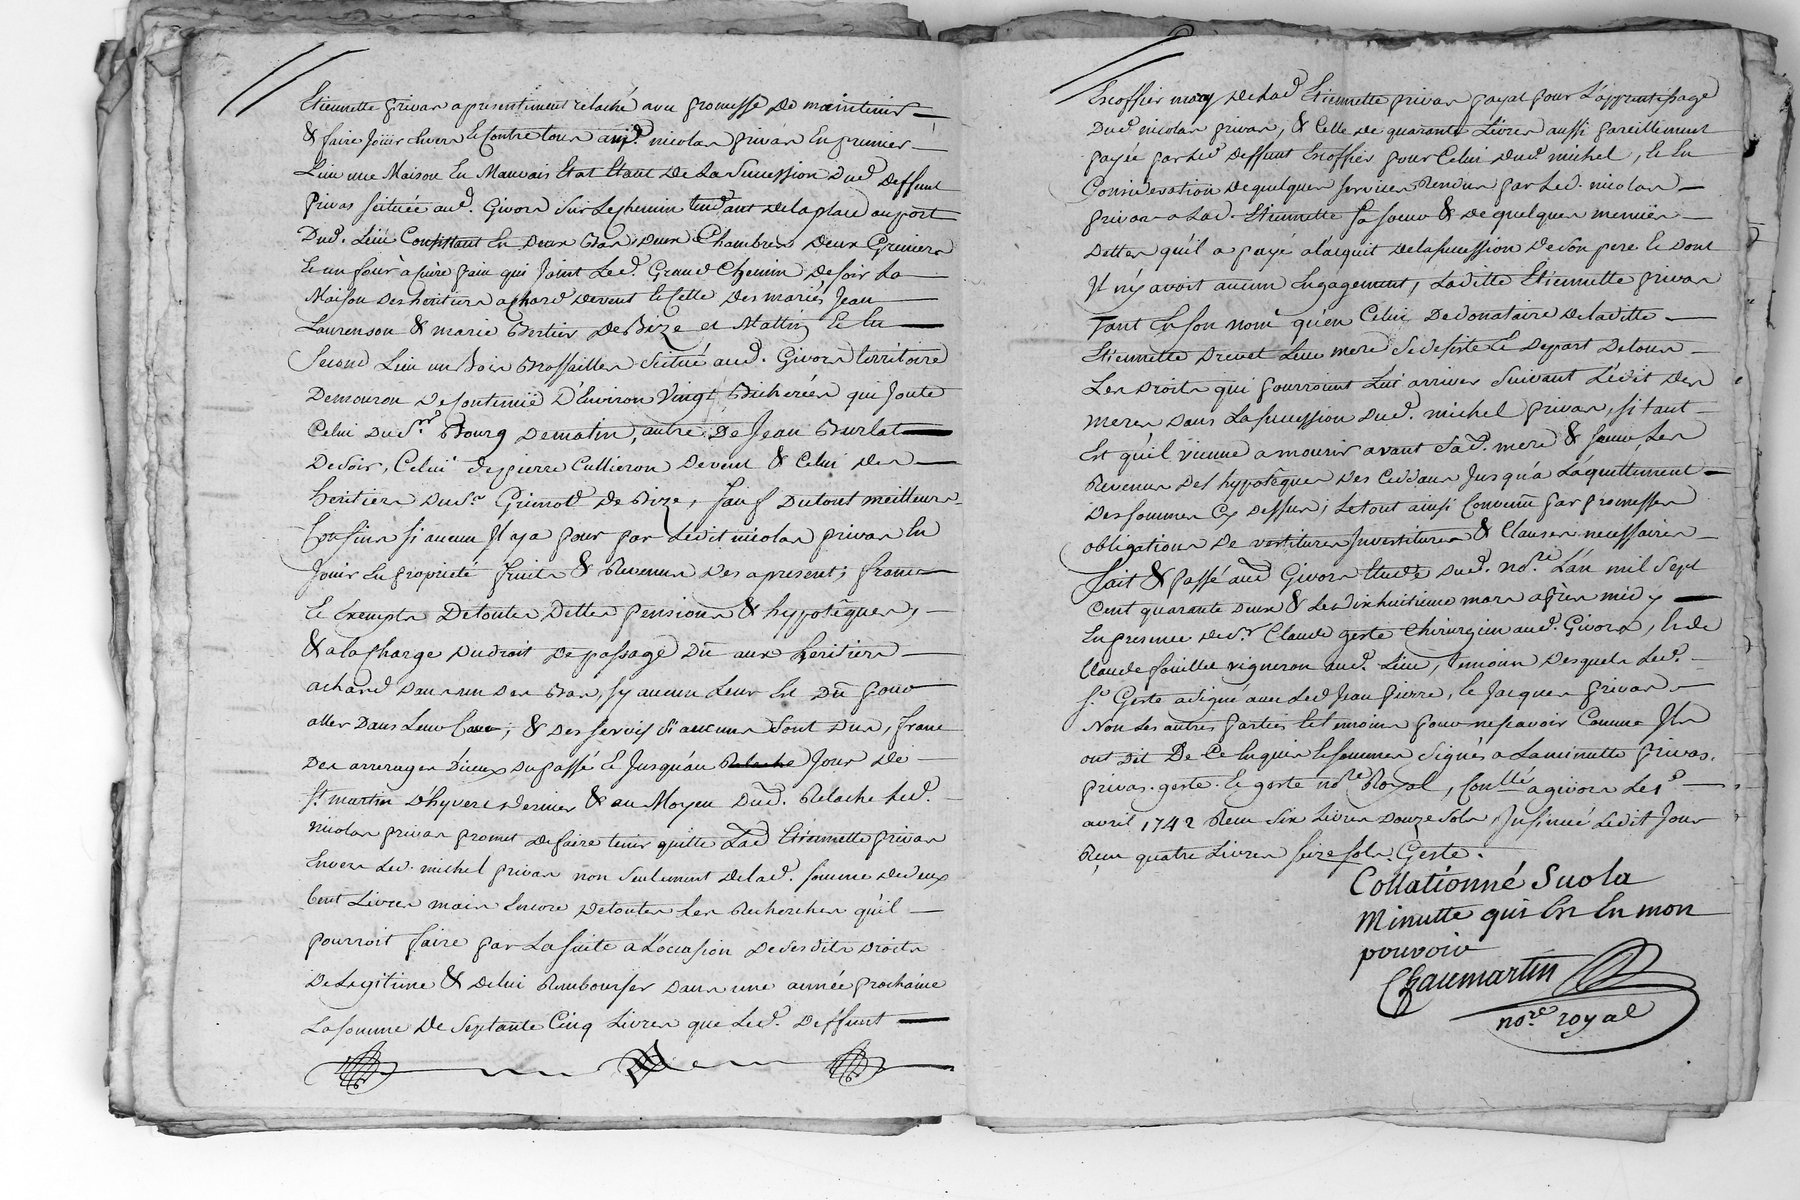 Etiennette privas a presentement relaché avec promesse De maintenir
& faire Jouir Envers Et Contre tous aud. nicolas privas En premier
Lieu une Maison En Mauvais Etat Etant De La Sucession Dud Deffunt
privas scituée aud. Givors sur Le chemin tendant De la place au port
Dud. Lieu Consistant En Deux Bas, Deux Chambres Deux Greniers
Et un four à cuire pain qui Joint Led. Grand Chemin De soir La
Maison Des heritiers achard Devent Et Celle Des mariés Jean
Laurenson & marie Bertier De Bize et Mattin Et En
Second Lieu un Bois Brossailles Scitué aud. Givors territoire
De mouron De Contenüe D'Environ Vingt Bicherées qui Joute
Celui Du Sr. Bourg De matin, autre De Jean Burlat
De soir, Celui de pierre Cullieron De vent & Celui Des
heritiers Du Sr Grimod De Bize, sauf Du tout meilleurs
Confins si aucun Il y a pour par Ledit nicolas privas En
Jouir En propriété fruits & Revenus Des apresent, francs
Et Exempts De toutes Dettes pensions & hypotêques,
& a la Charge Du droit De passage Dü aux heritiers
achard Dans un Des Bas, sy aucun Leur Est Dü pour
aller Dans Leur Cave, & Des servis si aucuns sont Dus, francs
Des arrerages D'iceux Du passé Et Jusqu'au Jour De
St. martin D'hyvert Dernier & au Moyen Dud. Relache Led.
nicolas privas promet De faire tenir quitte Lad Etiennette privas
Envers Led. michel privas non seulement De lad. somme De deux
Cent Livres mais Encore De toutes Les Recherches qu'il
pourroit faire par La suite a L'occasion De ses dits Droits
De Legitime & De lui Rembourser Dans une année prochaine
La somme De Septante Cinq Livres que Led. Deffunt
Escoffier mary De Lad Etiennette privas payat pour L'apprentissage
Dud. nicolas privas, & Celle De quarante Livres aussi pareillement
payée par Led Deffunt Escoffier pour Celui Dud. michel, Et En
Consideration De quelques services Rendus par Led. nicolas
privas a Lad. Etiennette sa soeur & De quelques menües
Dettes qu'il a payé a l'acquit De la sucession De son pere Et Dont
Il n'y avoit aucun Engagement, Laditte Etiennette privas
tant En son nom qu'En Celui De Donataire De laditte
Etiennette Drevet Leur mere se desiste Et Depart De tous
Les Droits qui pourroient Lui arriver suivant L'édit Des
meres Dans La sucession Dud. michel privas, si tant
Est qu'il vienne a mourir avant sad. mere & soeur, Les
Revenus Des hypotêques Des Ceddans Jusqu'a L'aquittement
Des sommes Cy Dessus, Le tout ainsi Convenu par promesses
obligations De vestitures Investitures & Clauses necessaires
fait & passé aud Givors Etude Dud. nore. L'an mil sept
Cent quarante Deux & Le Dix huitieme mars après midy
En presence De Sr. Claude geste Chirurgien aud. Givors, & de
Claude fouillet vigneron aud. Lieu, temoins Desquels Led.
Sr. Geste a signé avec Led Jean pierre, Et Jacques privas
Non Les autres parties Et temoins pour ne scavoir Comme Ils
ont Dit De Ce Enquis Et sommes Signés a La minutte privas.
privas. geste. Et geste nore Royal, Conllé a givors Le 1er
avril 1742 Reçu Six Livres Douze Sols, Insinué Ledit Jour
Reçu quatre Livres seize sols. Geste.
Collationné Sur la
Minutte qui Est En mon
pouvoir
Chaumartin
nore. royal